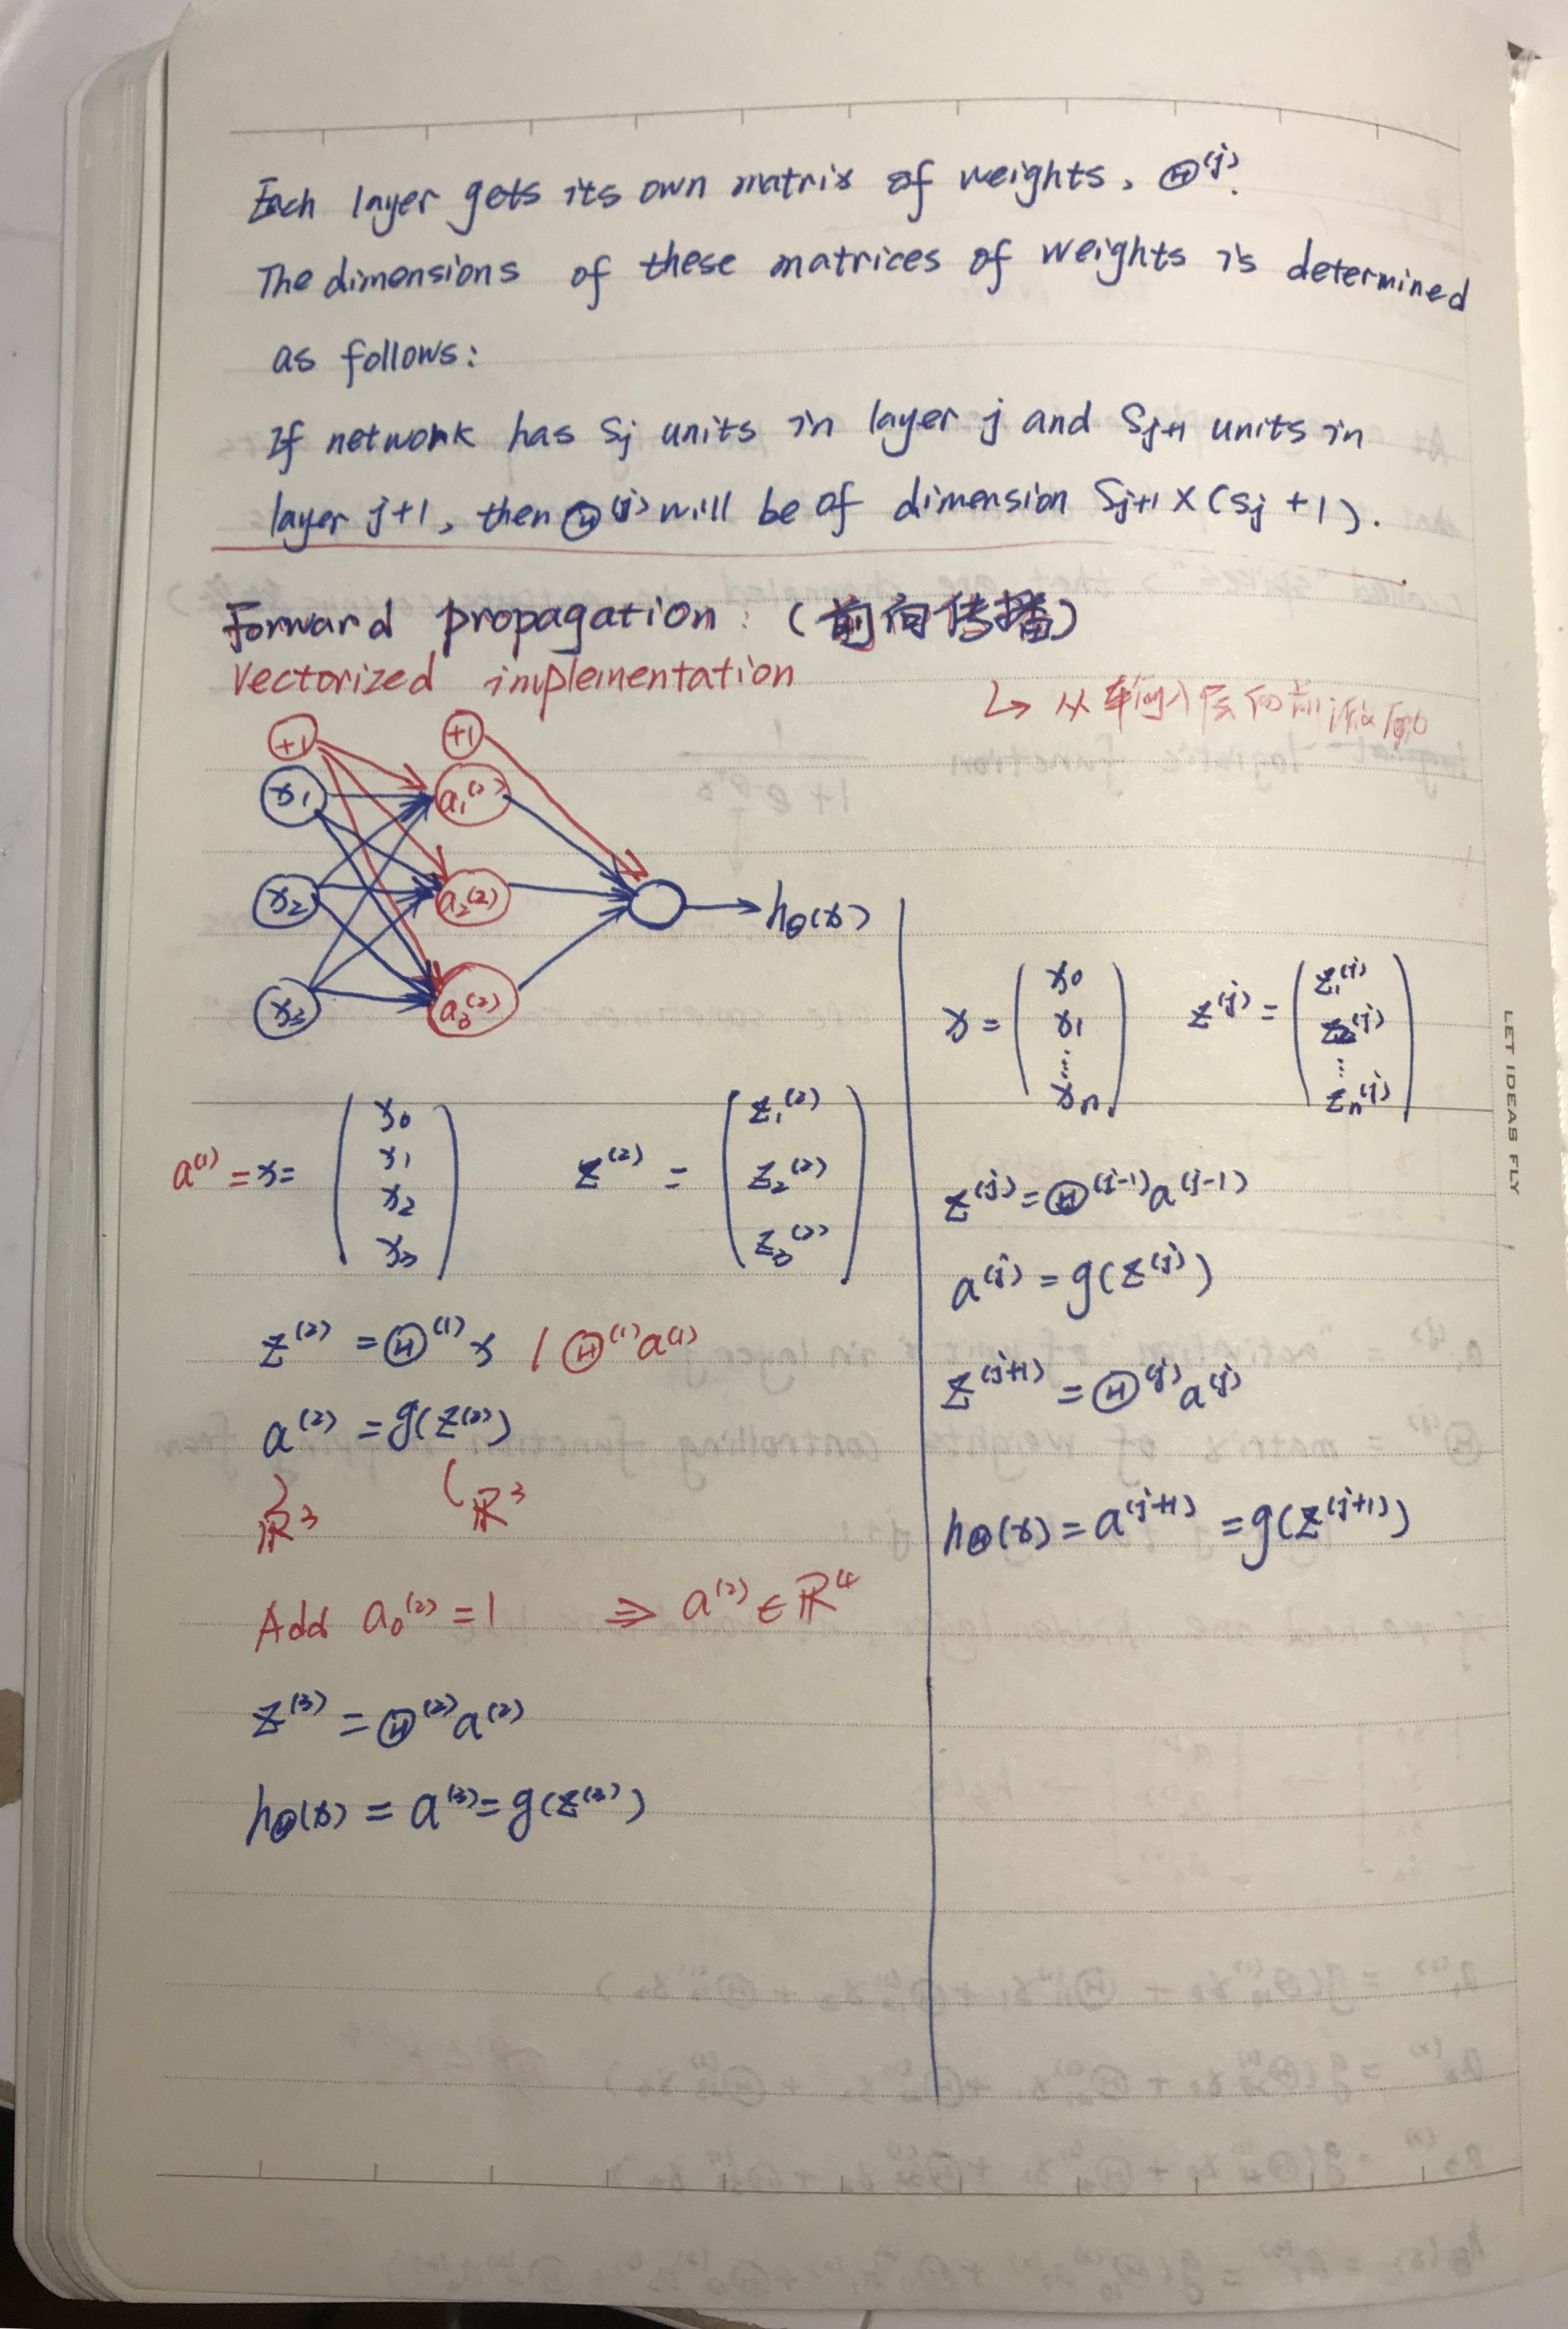 Each layer gets its own matrix of weights, Θ^(j).
The dimensions of these matrices of weights is determined
as follows:
If network has Sj units in layer j and Sj+1 units in
layer j+1, then Θ^(j) will be of dimension Sj+1 × (Sj +1).
Forward propagation: (前向传播)
Vectorized implementation
↳ 从车俞入层向前
+1 +1
x1 a1^(2)
x2 a2^(2)
x3 a3^(2)
→ hΘ(x)
a^(1) = x = (x0 x1 x2 x3)
z^(2) = (z1^(2) z2^(2) z3^(2))
z^(2) = Θ^(1) x / Θ^(1) a^(1)
a^(2) = g(z^(2))
ℝ^3 ℝ^3
Add a0^(2) = 1 ⇒ a^(2) ∈ ℝ^4
z^(3) = Θ^(2) a^(2)
hΘ(x) = a^(3) = g(z^(3))
x = (x0 x1 ⋮ xn)
z^(j) = (z1^(j) z2^(j) ⋮ zn^(j))
z^(j) = Θ^(j-1) a^(j-1)
a^(j) = g(z^(j))
z^(j+1) = Θ^(j) a^(j)
hΘ(x) = a^(j+1) = g(z^(j+1))
LET IDEAS FLY